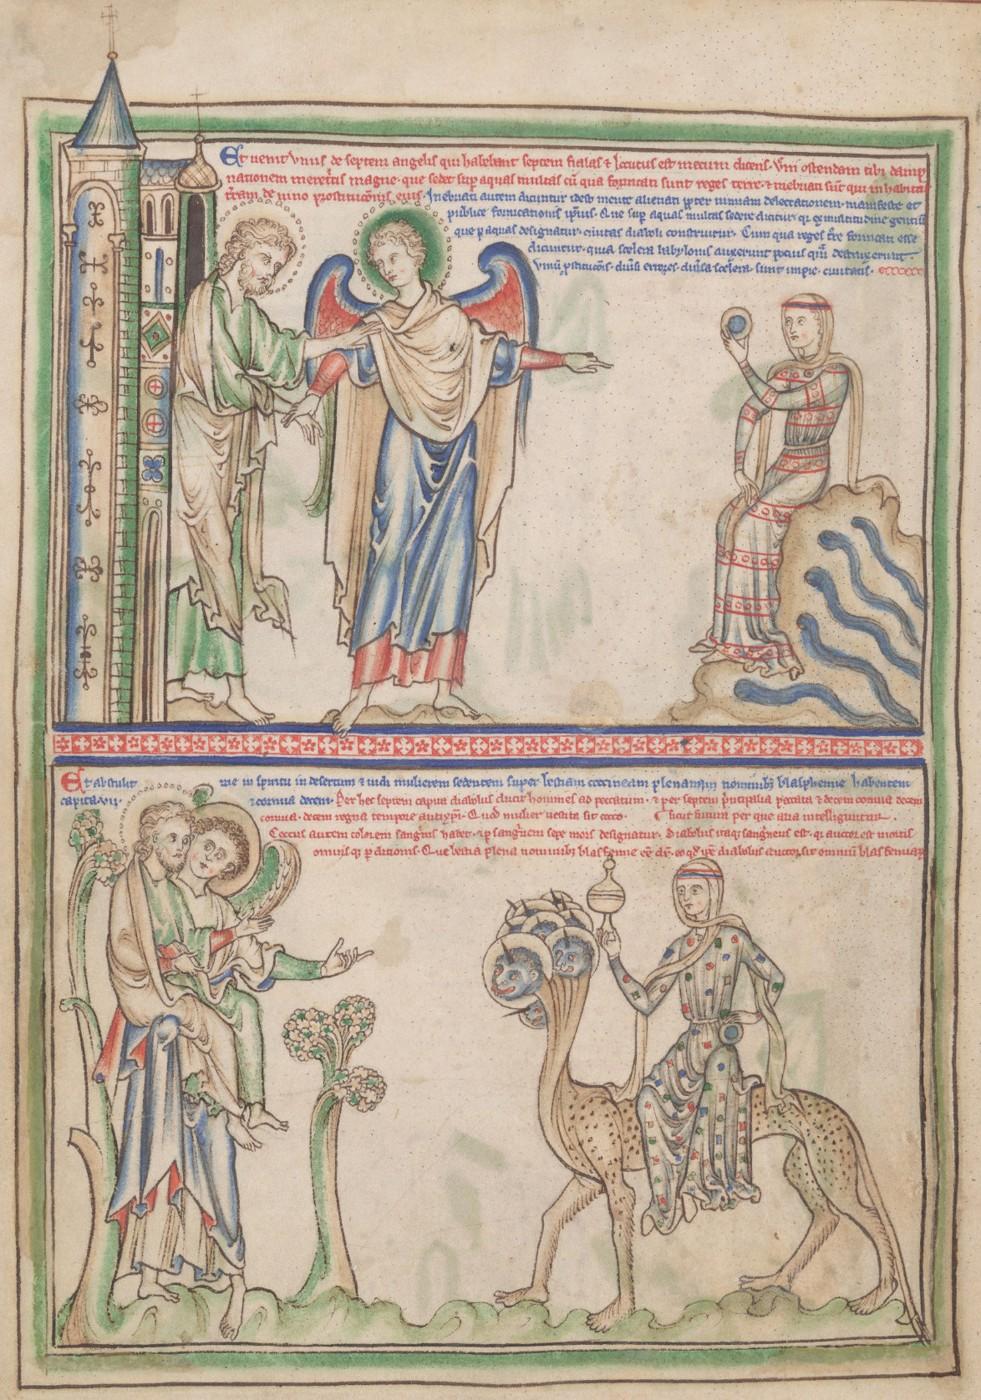 Et uenit vnus de septem angelis qui habebant septem fialas ⁊ locutus est mecum dicens. Veni ostendam tibi damp
nationem meretricis magne. que sedet sup aquas multas cū qua fornicati sunt reges terre. ⁊ inebriati sūt qui inhabitāt
trām de uino prostitucōnis eius. Inebriati autem dicuntur mente alienati ꝓpter nimiam delectationem manifeste et
publice fornicationis ipsius. Que sup aquas multas sedere dicitur
que ꝑ aquas designatur. ciuitas diaboli construitur. Cum qua reges tr̄e fornicati esse
dicuntur. quia scelera babylonis auxerunt
Vinū ꝓstitucōis. diuersi errores. diuersa scelera sunt impie ciuitatis.
Et abstulit me in spiritu in desertum ⁊ uidi mulierem sedentem super bestiam coccineam plenam nominibꝫ blasphemie habentem
capita vii. ⁊ cornua decem. Per hec septem capita diabolus ducit homines ad peccatum. ⁊ per septem ṕncipalia peccata ⁊ decem cornua decem
cornua. decem regna tempore antixp̄i. Quod mulier uestita sit cocco. sicut supra per que alia intelliguntur.
Coccus autem colorem sanguinis habet. ⁊ ꝑ sanguinem sepe mors designatur. Diabolus itaqꝫ sanguineus est. qi auctor est mortis
omnis ꝑditionis. Que bestia plena nominibꝫ blasfemie diabolus auctor sit omniū blasfemiarꝫ